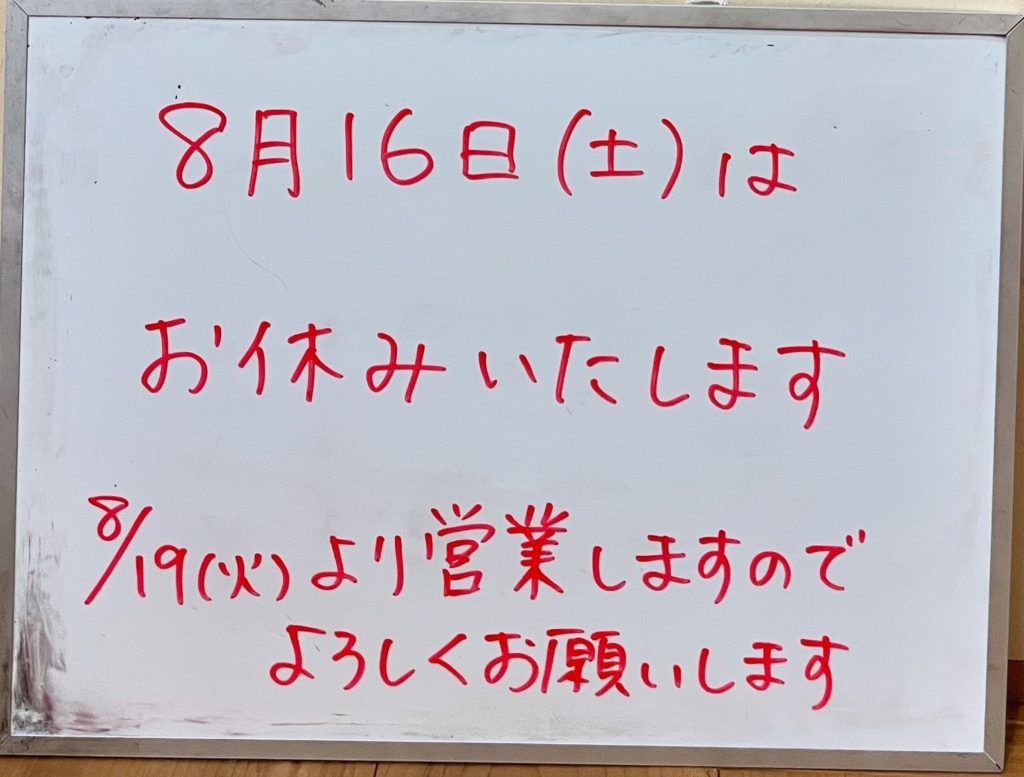 8月16日(土)は
お休みいたします
8/19(火)より営業しますので
よろしくお願いします